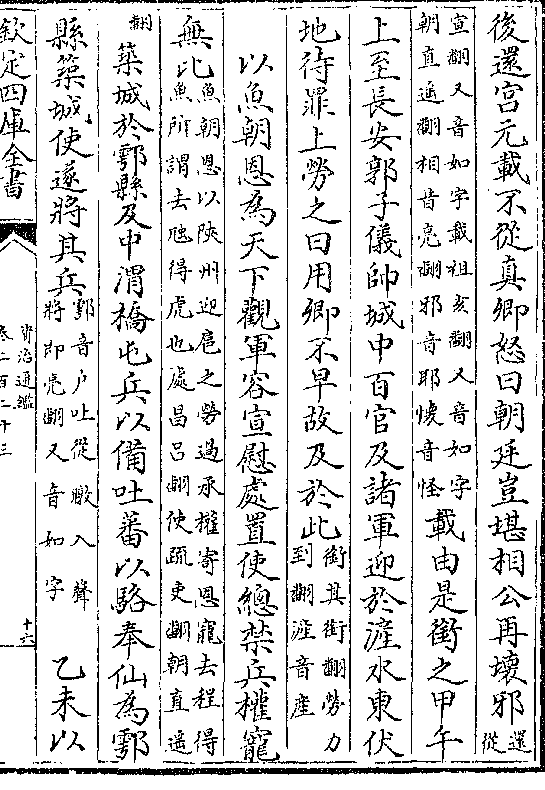 後還宫元載不從真卿怒曰朝廷豈堪相公再壞邪還從
宣翻又音如字載祖亥翻又音如字
朝直遥翻相音亮翻邪音耶懐音怪
載由是銜之甲午
上至長安郭子儀帥城中百官及諸軍迎於滻水東伏
地待罪上勞之曰用卿不早故及於此
銜其銜翻勞力
到翻滻音產
以魚朝恩為天下觀軍容宣慰處置使總禁兵權寵
無比
魚朝恩以陜州迎扈之勞過承權寄恩寵去程得
魚所謂去虺得虎也處昌吕翻使疏吏翻朝直遥
翻
築城於鄠縣及中渭橋屯兵以備吐蕃以駱奉仙為鄠
縣築城使遂將其兵
鄠音户吐從暾入聲
將即亮翻又音如字
乙未以
欽定四庫全書
資治通鑑
卷二百二十三
十六